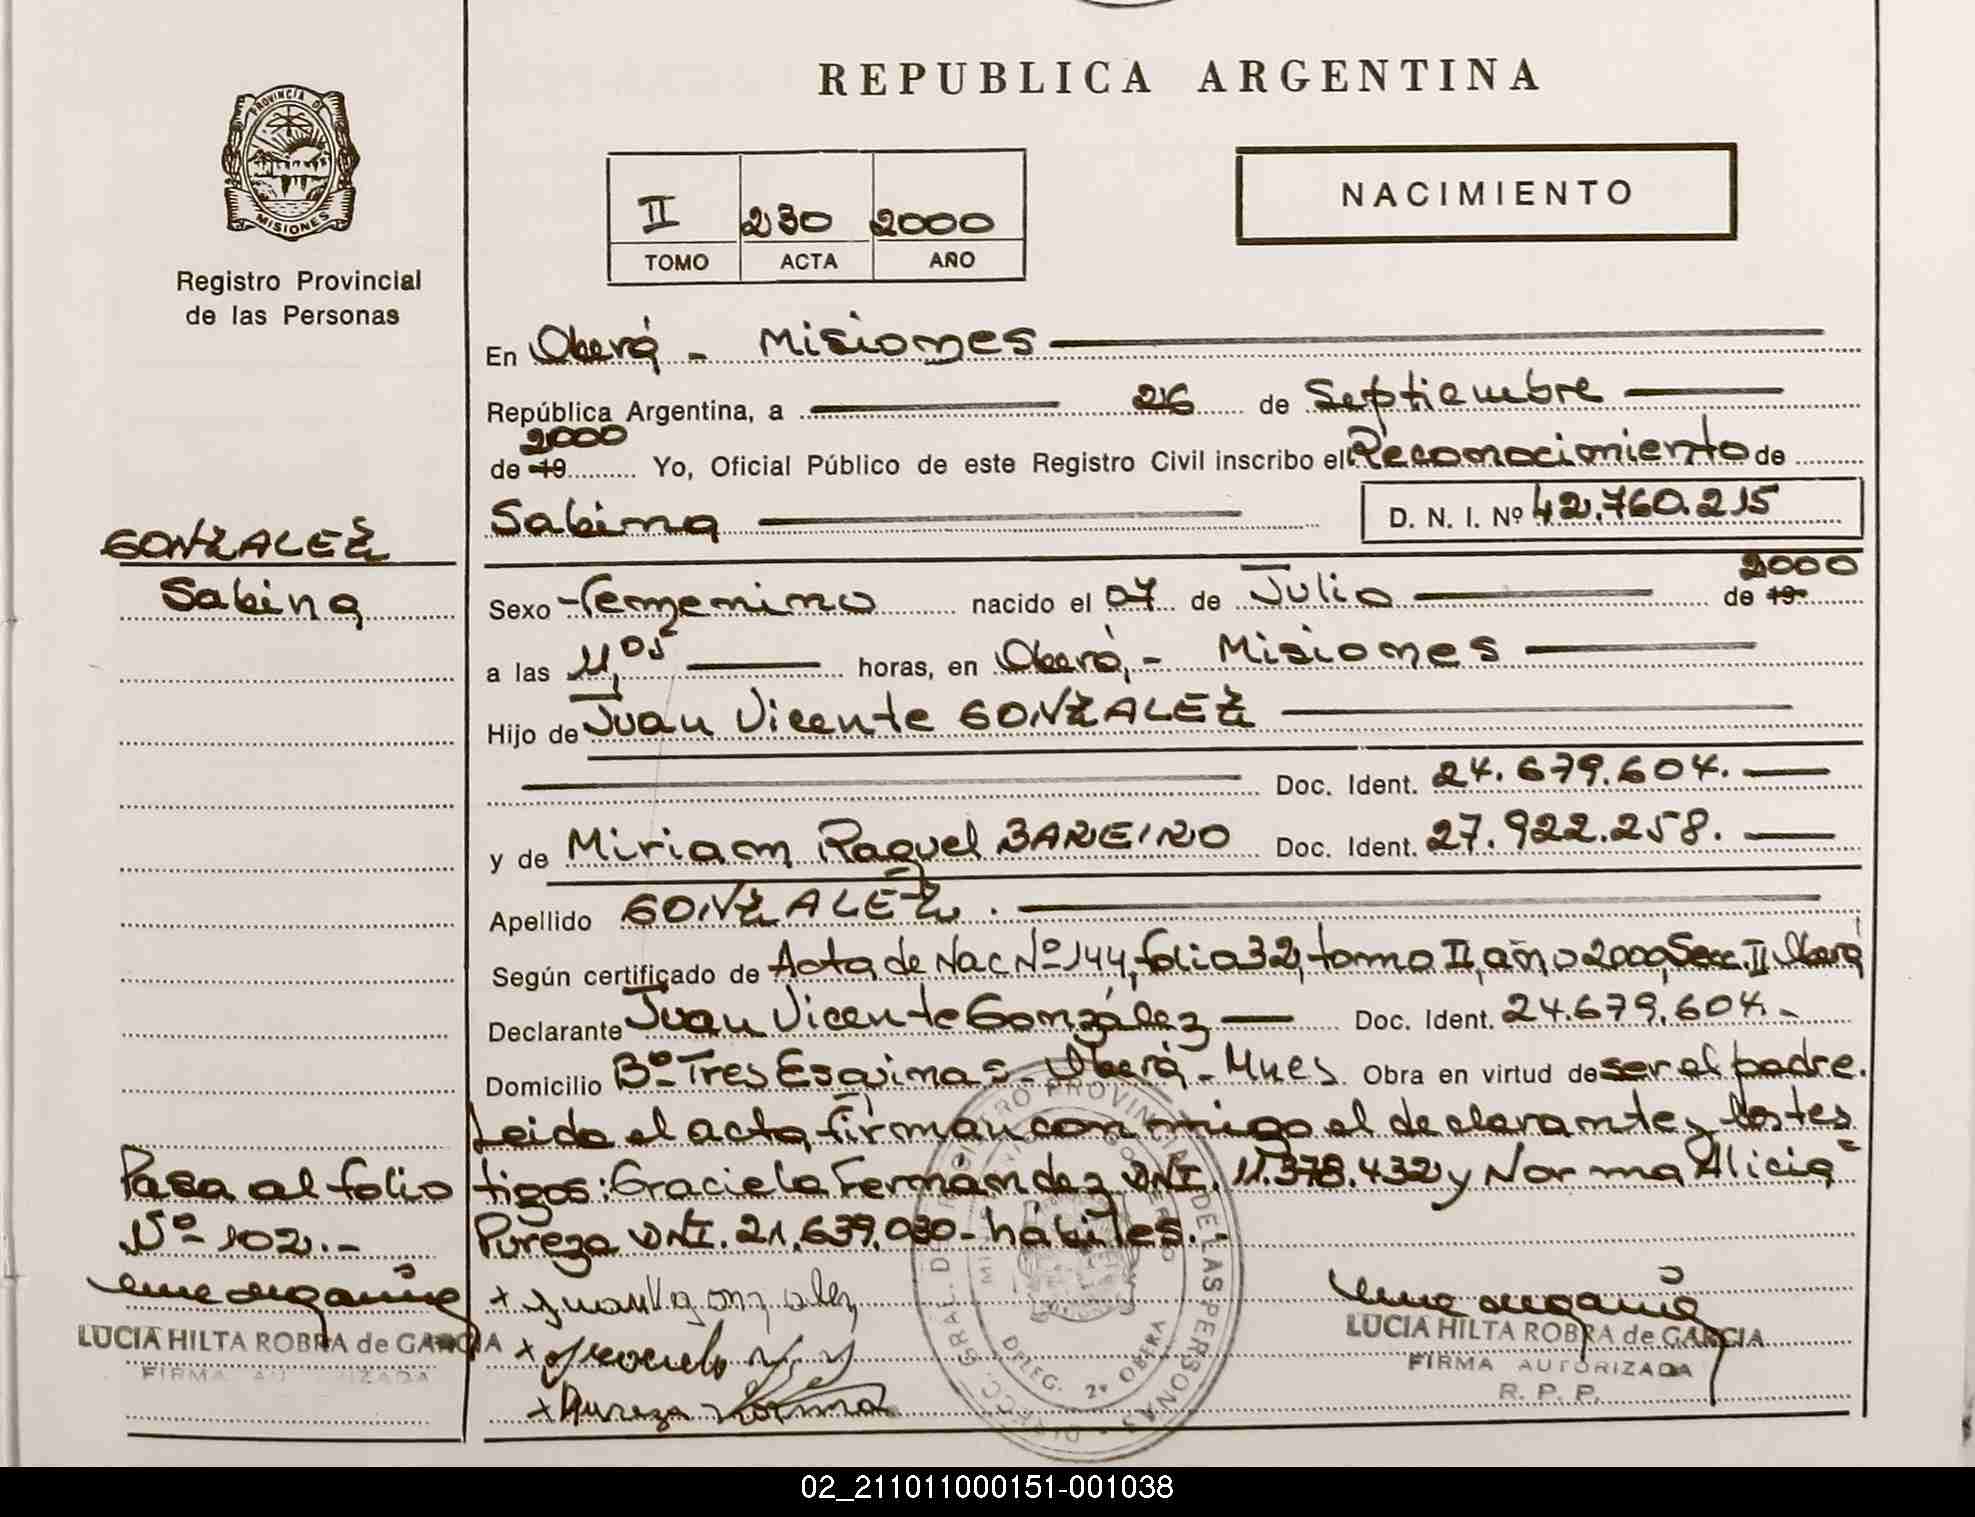 REPUBLICA ARGENTINA
PROVINCIA DE
MISIONES
Registro Provincial
de las Personas
II 230 2000
TOMO ACTA AÑO
NACIMIENTO
En Oberá - Misiones
República Argentina, a 26 de Septiembre
2000
de 19 Yo, Oficial Público de este Registro Civil inscribo el Reconocimiento de
Sabina D. N. I. Nº 42.760.215
GONZALEZ
Sabina
2000
Sexo Femenino nacido el 07 de Julio de 19
a las 11,05 horas, en Oberá, - Misiones
Hijo de Juan Vicente GONZALEZ
Doc. Ident. 24.679.604.
y de Miriam Raquel BAREIRO Doc. Ident. 27.922.258.
Apellido GONZALEZ.
Según certificado de Acta de Nac Nº 144, folio 32, tomo II, año 2000, Secc. II Oberá
Declarante Juan Vicente González Doc. Ident. 24.679.604.-
Domicilio Bº Tres Esquinas - Oberá - Mnes Obra en virtud de ser el padre.
Leida el acta, firman conmigo el declarante y los tes
tigos: Graciela Fernández DNI. 11.378.432 y Norma Alicia
Pureza DNI. 21.639.030 - hábiles. -
Pasa al folio
Nº 102.-
x Juan V gonzalez
x Pureza Norma
LUCIA HILTA ROBRA de GARCIA
FIRMA AUTORIZADA
LUCIA HILTA ROBRA de GARCIA
FIRMA AUTORIZADA
R. P. P.
DIRECC. GRAL. DEL REGISTRO PROVINCIAL DE LAS PERSONAS
DELEG. 2ª OBERA
02_211011000151-001038